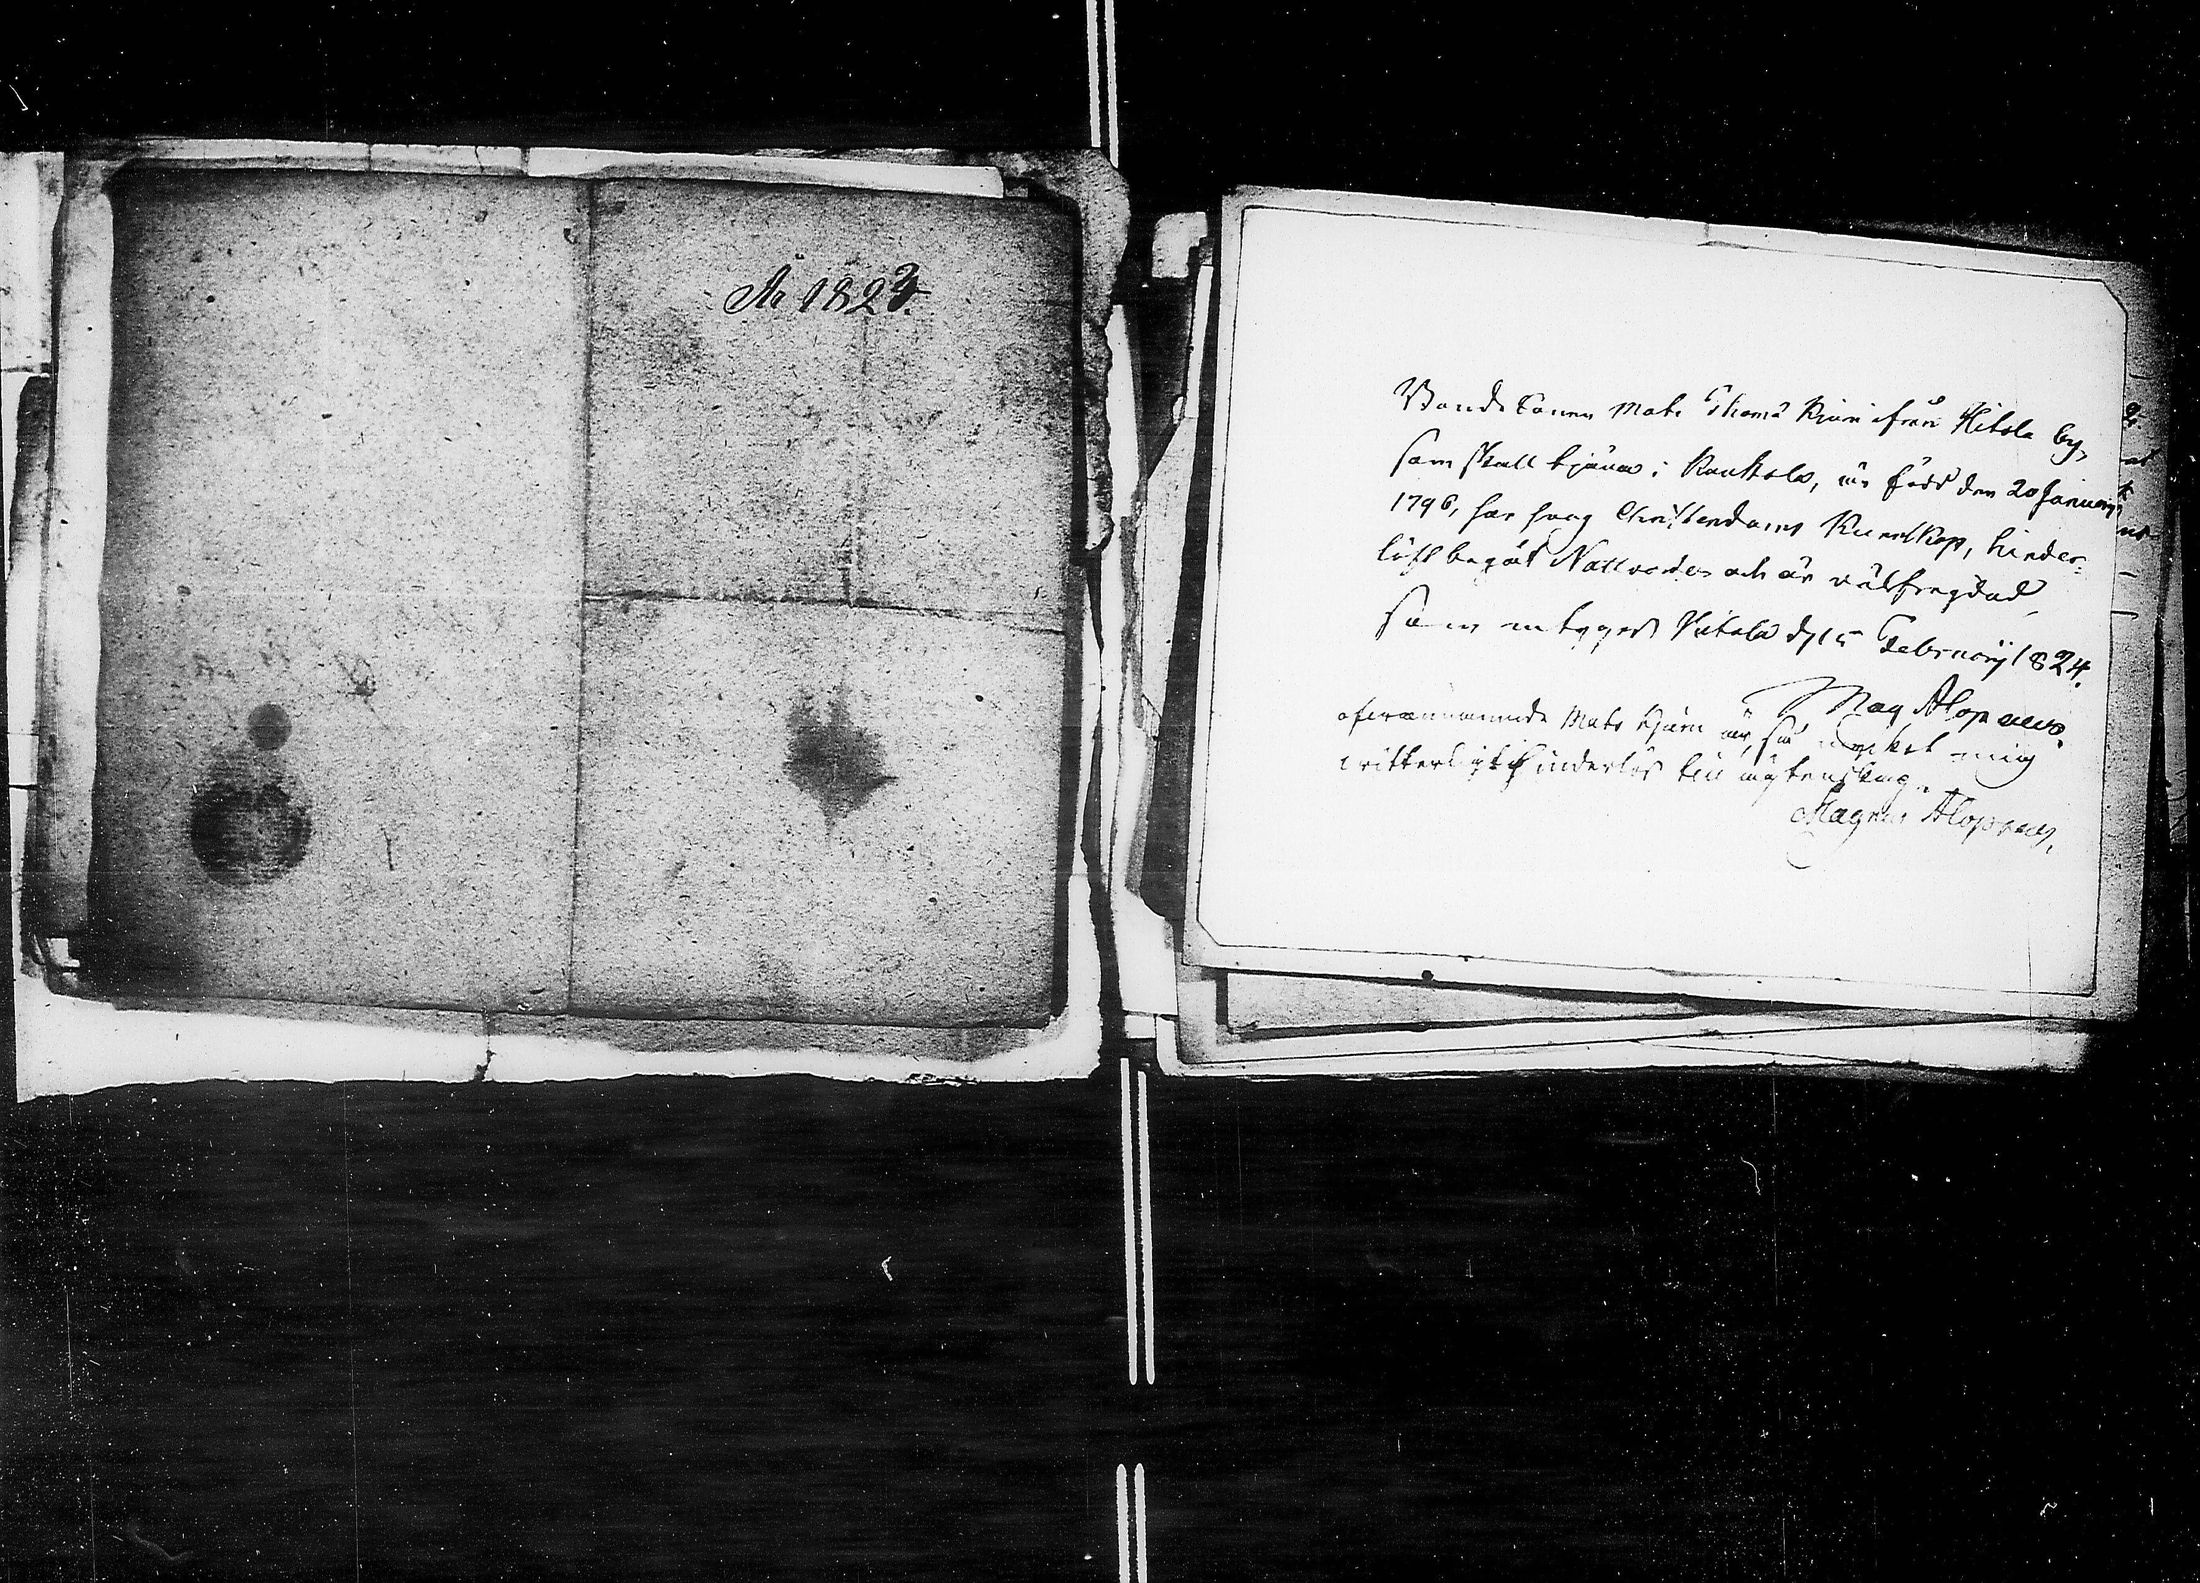 År 1823.
Bonde Sonen Mats Thoms Kiuri ifrån Hitola by,
som skall tjäna i Räisälä, är född den 20 Januarij
1796, har svag Christendoms Kunskap, hinder-
löst begåt Nattvarden och är välfrägdad,
som intygas Hitola d 15 Februarij 1824.
Mag Alopæus.
ofvannämnde Mats Kjuri är, så mycket mig
vitterligt hinderlös till ägtenskap.
Magnus Alopæus.